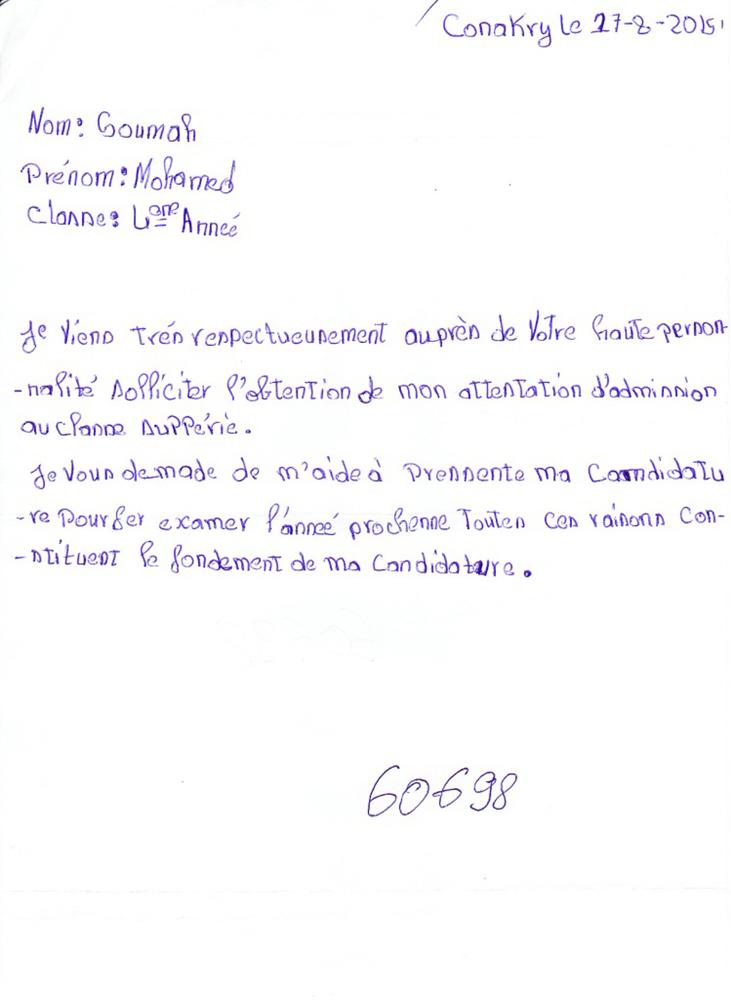 Conakry le 27-8-2015
Nom: Soumah
Prénom: Mohamed
Classe: 4ème Anneé
Je Viens trés respectueusement auprès de Votre haute person-
-nalité solliciter l'obtention de mon attestation d'admission
au classe suppérie.
Je Vous demade de m'aide à Pressente ma Candidatu
-re Pour fer examer l'anneé prochenne Toutes ces raisons Con-
-stituent le fondement de ma Candidature.
60698